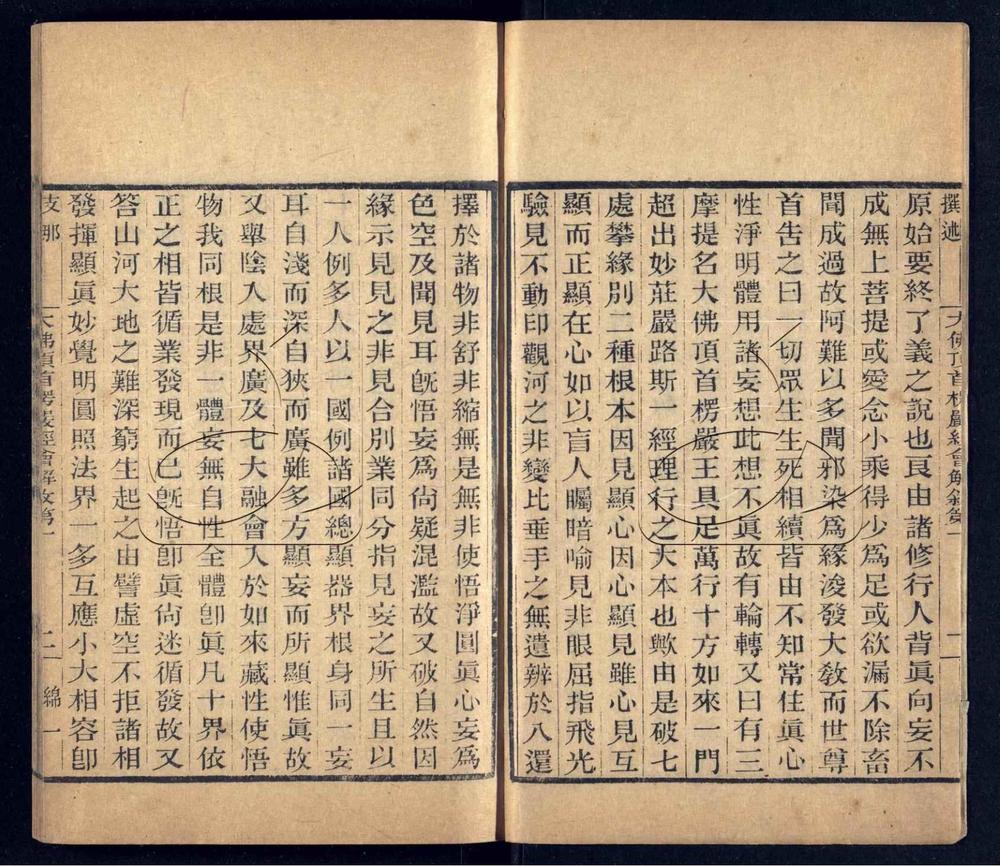 撰述
大佛頂首楞嚴經會解敘第一
一
原始要終了義之說也良由諸修行人背眞向妄不
成無上菩提或愛念小乘得少爲足或欲漏不除畜
聞成過故阿難以多聞邪染爲緣浚發大教而世尊
首告之曰一切眾生生死相續皆由不知常住眞心
性淨明體用諸妄想此想不眞故有輪轉又曰有三
摩提名大佛頂首楞嚴王具足萬行十方如來一門
超出妙莊嚴路斯一經理行之大本也歟由是破七
處攀緣別二種根本因見顯心因心顯見雖心見互
顯而正顯在心如以盲人矚暗喻見非眼屈指飛光
驗見不動印觀河之非變比垂手之無遺辨於八還
擇於諸物非舒非縮無是無非使悟淨圓眞心妄爲
色空及聞見耳旣悟妄爲尙疑混濫故又破自然因
緣示見見之非見合別業同分指見妄之所生且以
一人例多人以一國例諸國總顯器界根身同一妄
耳自淺而深自狹而廣雖多方顯妄而所顯惟眞故
又舉陰入處界廣及七大融會入於如來藏性使悟
物我同根是非一體妄無自性全體卽眞凡十界依
正之相皆循業發現而已旣悟卽眞尙迷循發故又
答山河大地之難深窮生起之由譬虛空不拒諸相
發揮顯眞妙覺明圓照法界一多互應小大相容卽
支那
大佛頂首楞嚴經會解敘第一
二
綿一